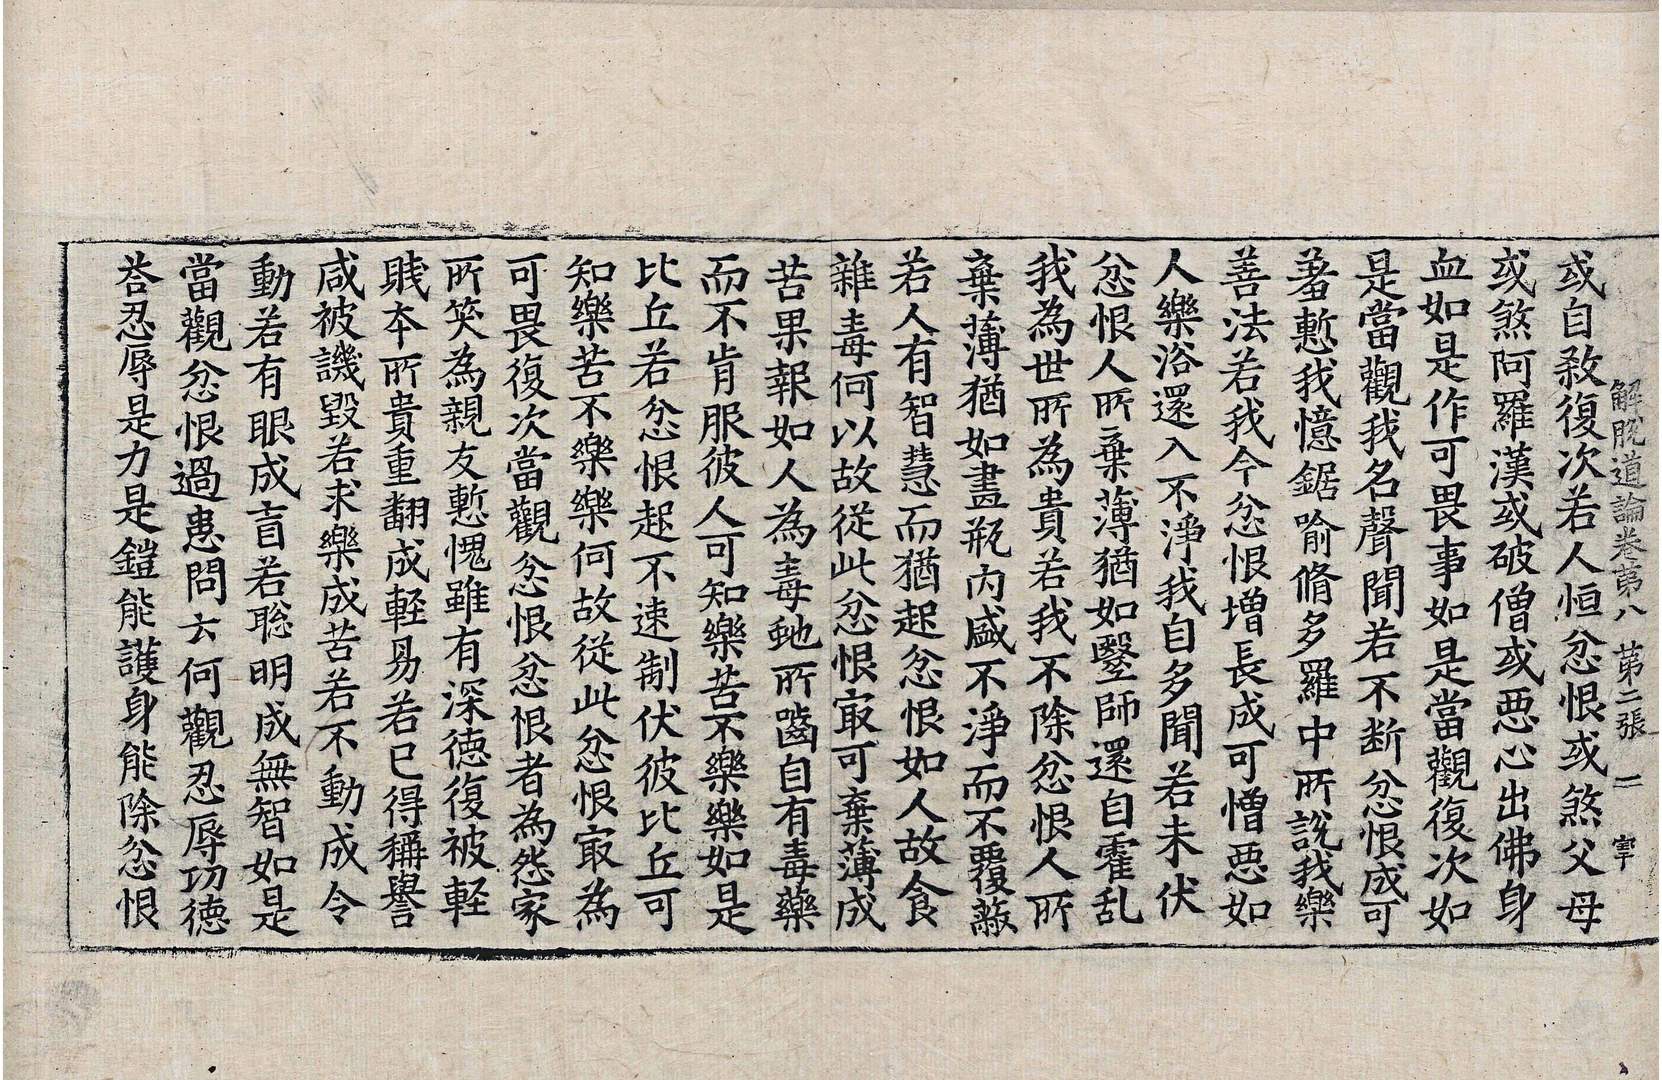 解脱道論卷第八　第二張　二　寧
或自殺復次若人恒忿恨或煞父母
或煞阿羅漢或破僧或惡心出佛身
血如是作可畏事如是當觀復次如
是當觀我名聲聞若不断忿恨成可
羞慙我憶鋸喻脩多羅中所說我樂
善法若我今忿恨增長成可憎惡如
人樂浴還入不淨我自多聞若未伏
忿恨人所棄薄猶如毉師還自霍乱
我為世所為貴若我不除忿恨人所
棄薄猶如畫瓶內盛不淨而不覆蔽
若人有智慧而猶起忿恨如人故食
雜毒何以故從此忿恨㝡可棄薄成
苦果報如人為毒虵所齧自有毒藥
而不肯服彼人可知樂苦不樂樂如是
比丘若忿恨起不速制伏彼比丘可
知樂苦不樂樂何故從此忿恨㝡為
可畏復次當觀忿恨忿恨者為怨家
所笑為親友慙愧雖有深德復被軽
賤本所貴重翻成軽易若已得稱譽
咸被譏毀若求樂成苦若不動成令
動若有眼成盲若聡明成無智如是
當觀忿恨過患問云何觀忍辱功德
荅忍辱是力是鎧能護身能除忿恨